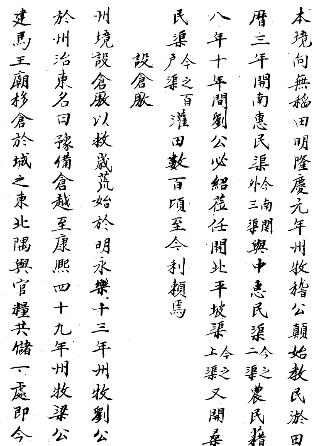 本境向無稻田明隆慶元年州牧稽公顛始教民淤田
曆三年開南惠民渠今南關外三渠與中惠民渠今之二渠農民藉
八年十年間劉公必紹蒞任開北平坡渠今之上渠又開桑
民渠今之百户渠灌田數百頃至今利賴焉
設倉廒
州境設倉廒以救歲荒始於明永樂十三年州牧劉公
於州治東名曰豫備倉越至康熙四十九年州牧梁公
建馬王廟移倉於城之東北隅與官糧共儲一處即今